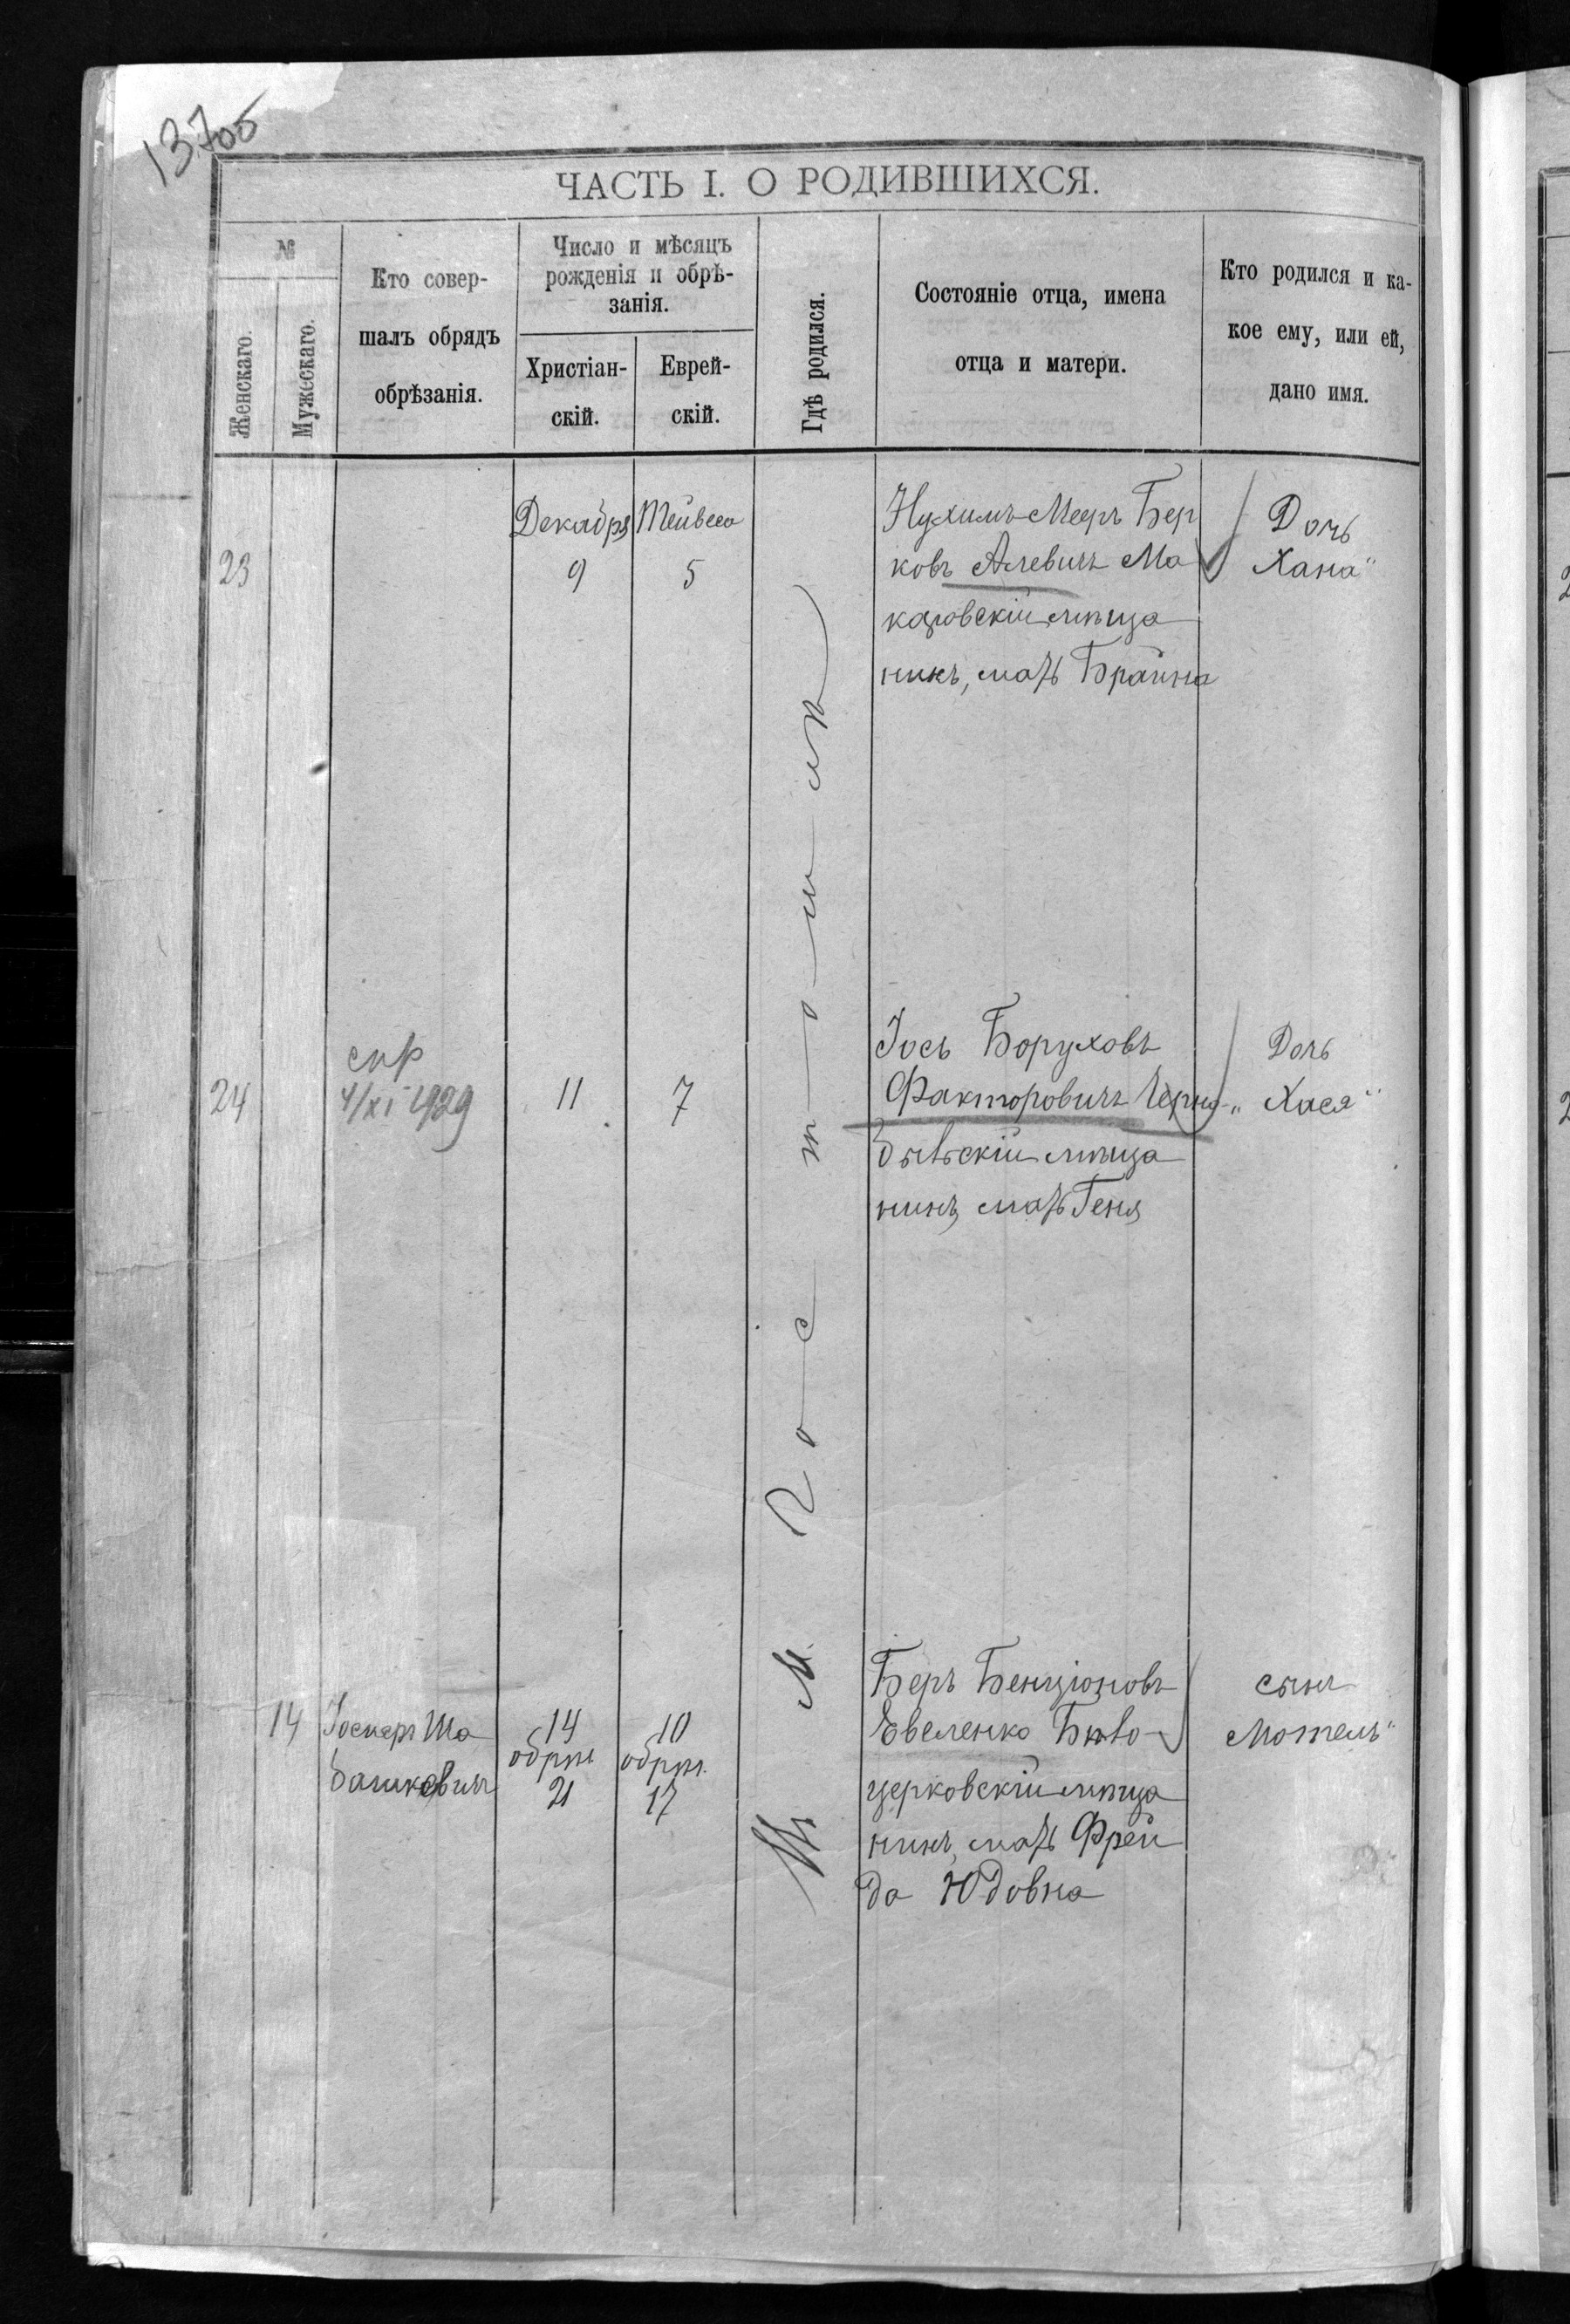 13705
ЧАСТЬ I. О РОДИВШИХСЯ.
№
Женскаго.
Мужескаго.
Кто совер-
шалъ обрядъ
обрѣзанія.
Число и мѣсяцъ
рожденія и обрѣ-
занія.
Христіан-
скій.
Еврей-
скій.
Гдѣ родился.
Состояніе отца, имена
отца и матери.
Кто родился и ка-
кое ему, или ей,
дано имя.
въ м.
23
Декабря
9
Тейвеса
5
Нухимъ-Мееръ Бер
ковъ Алевичъ Ма
каровскій мѣща
нинъ, мать Брайна
Дочь
Хана"
24
спр
4/XI 1929
11
7
Іось Боруховъ
Факторовичъ Черно-
быльскій мѣща
нинъ, мать Геня
Дочь
„Хася"
14
Ша
башкевичъ
14
обрѣз
21
10
обрѣз.
17
Беръ Бенціоновъ
Евеленко Бѣло-
церковскій мѣща
нинъ, мать Фрей
да Юдовна
сынъ
Мотель"